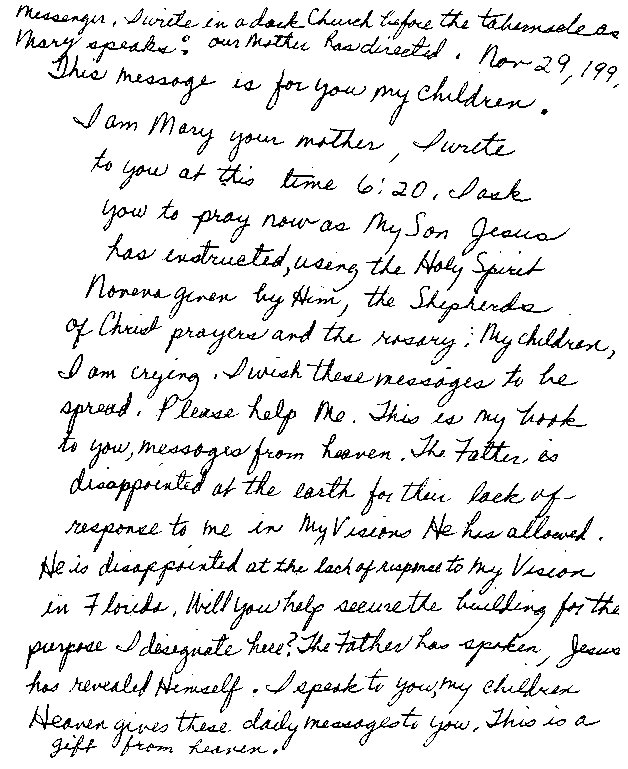 Messenger. I write in a dark Church before the tabernacle as
Mary speaks: our Mother has directed. Nov 29, 199
This message is for you my children.
I am Mary your mother, I write
to you at this time 6:20. I ask
you to pray now as My Son Jesus
has instructed, using the Holy Spirit
Novena given by Him, the Shepherds
of Christ prayers and the rosary: My children,
I am crying. I wish these messages to be
spread. Please help Me. This is my book
to you, messages from heaven. The Father is
disappointed at the earth for their lack of
response to me in My Visions He has allowed.
He is disappointed at the lack of response to My Vision
in Florida. Will you help secure the building for the
purpose I designate here? The Father has spoken, Jesus
has revealed Himself. I speak to you, my children
Heaven gives these daily messages to you. This is a
gift from heaven.